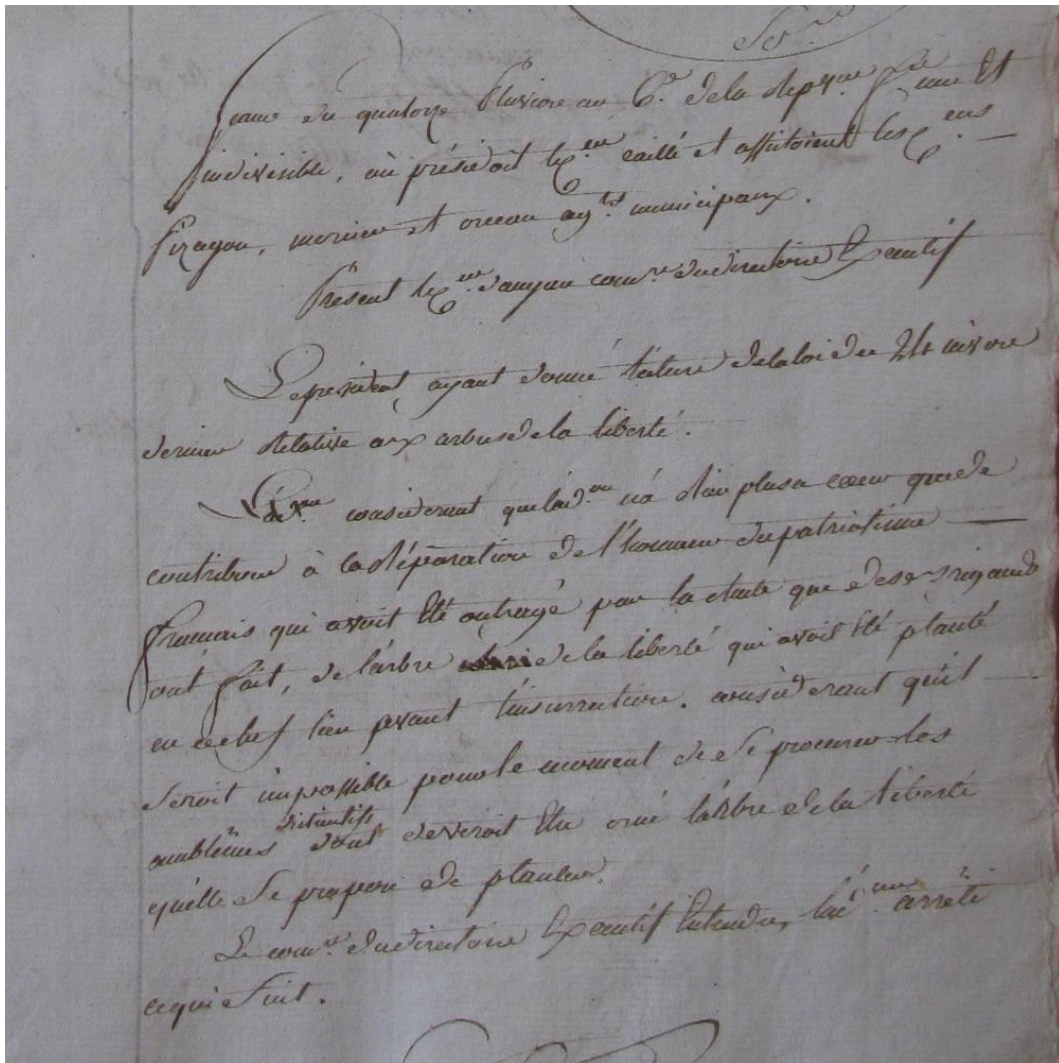 Scrre
Seance du quatorze Pluviose an 6e. de la Repque. fse une Et
indivisible, où présidoit le Cen caillé et assistoient les Cens —
Pizagou, mornier et moreau agts municipaux.
Présent le Cen danyau comre du directoire Executif
Le président, ayant donné lecture de la loi du 24 nivose
dernier Relative aux arbres de la liberté.
L'adon considerant que lad.on n'a Rien plus a coeur que de
contribuer à la Réparation de l'honneur du patriotisme —
francais qui avoit Eté outragé par la chute que des Brigands
ont fait, de l'arbre de la liberté qui avoit Eté planté
en ce chef lieu avant l'insurrection. considerant qu'il —
Seroit impossible pour le moment de Se procurer les
distinctifs
emblêmes dont devroit Etre orné l'arbre de la liberté
qu'elle Se propose de planter.
Le comre du directoire Executif Entendu, l'adon arrête
ce qui Suit.